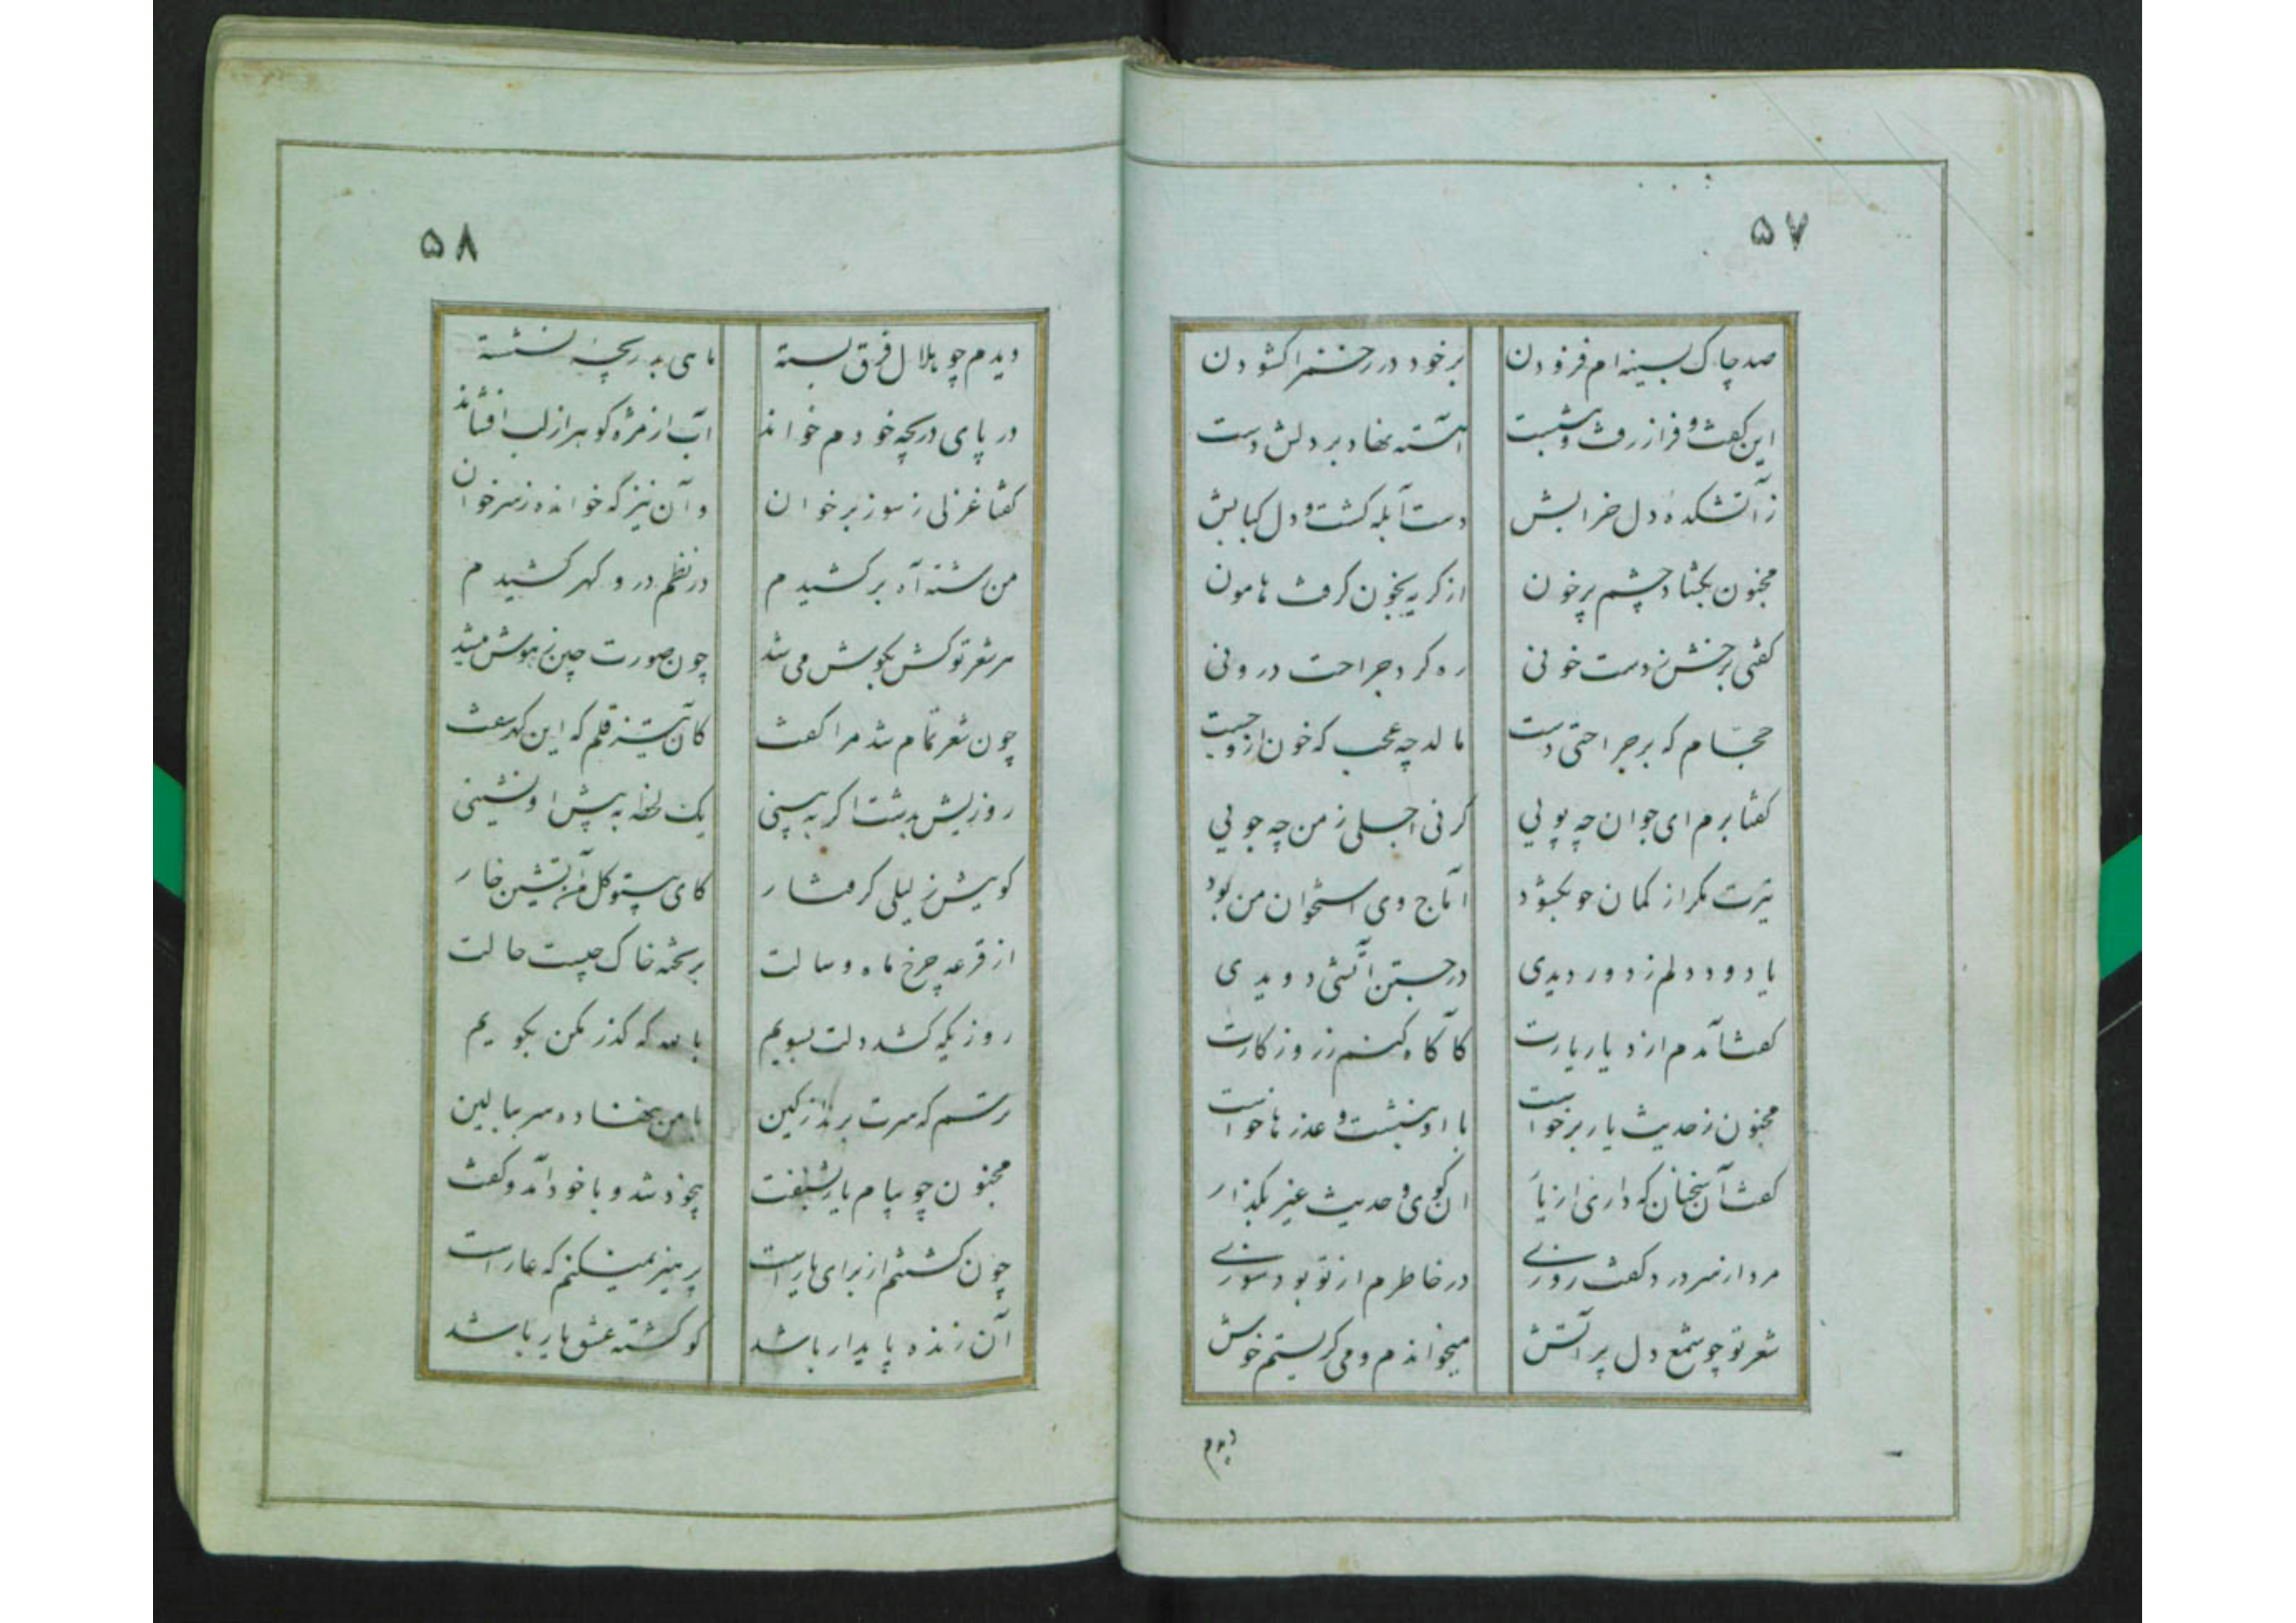 ۵۷
صد چاک بسینه ام فزودن برخود در زخمرا کشودن
این کفت و فراز رفت و بنشست آهسته نهاد بر دلش دست
زآتشکده دل خرابش دست آبله کشت و دل کبابش
مجنون بکشاد چشم پرخون از کریه بخون کرفت هامون
کفتی برخش ز دست خونی ره کرد جراحت درونی
حجام که بر جراحتی دست مالد چه عجب که خون ازو جست
کفتا برم ای جوان چه پویی کر نی اجلی ز من چه جویی
تیرت مکر از کمان چو بکشود اماج وی استخوان من بود
یا دود دلم ز دور دیدی در جستن آتشی دویدی
کفت آمدم از دیار یارت کآکاه کنم ز روزکارت
مجنون ز حدیث یار برخواست با او بنشست و عذرها خواست
کفت آن سخنان که داری از یار ان کوی و حدیث غیر بکذار
مرد از سر درد کفت روزی در خاطرم از تو بود سوزی
شعر تو چو شمع دل پر آتش میخواندم و می کریستم خوش
دیدم
۵۸
دیدم چو هلال فرق بسته ماهی بدریچه نشسته
در پای دریچه خودم خواند آب از مژه کوهر از لب افشاند
کفتا غزلی ز سوز برخوان وآن نیز که خوانده ز سرخوان
من شسته آه برکشیدم در نظم در و کهر کشیدم
هر شعر تو کش بکوش می شد چون صورت چین ز هوش میشد
چون شعر تمام شد مرا کفت کآن تیز قلم که این کهر سفت
روزیش بدشت اکر به بینی یک لحظه به پیش او نشینی
کویش ز لیلی کرفتار کای بیتو کل من آتشین خار
از قرعه چرخ ماه و سالت بر تخته خاک چیست حالت
روزیکه کشد دلت بسویم بالله که کذر مکن بکویم
ترسم که سرت برند از کین با من نهاده سر ببالین
مجنون چو پیام یار بشنفت بیخود شد و با خود آمد و کفت
چون کشتنم از برای یار است پرهیز نمیکنم که عار است
آن زنده پایدار باشد کو کشته عشق یار باشد